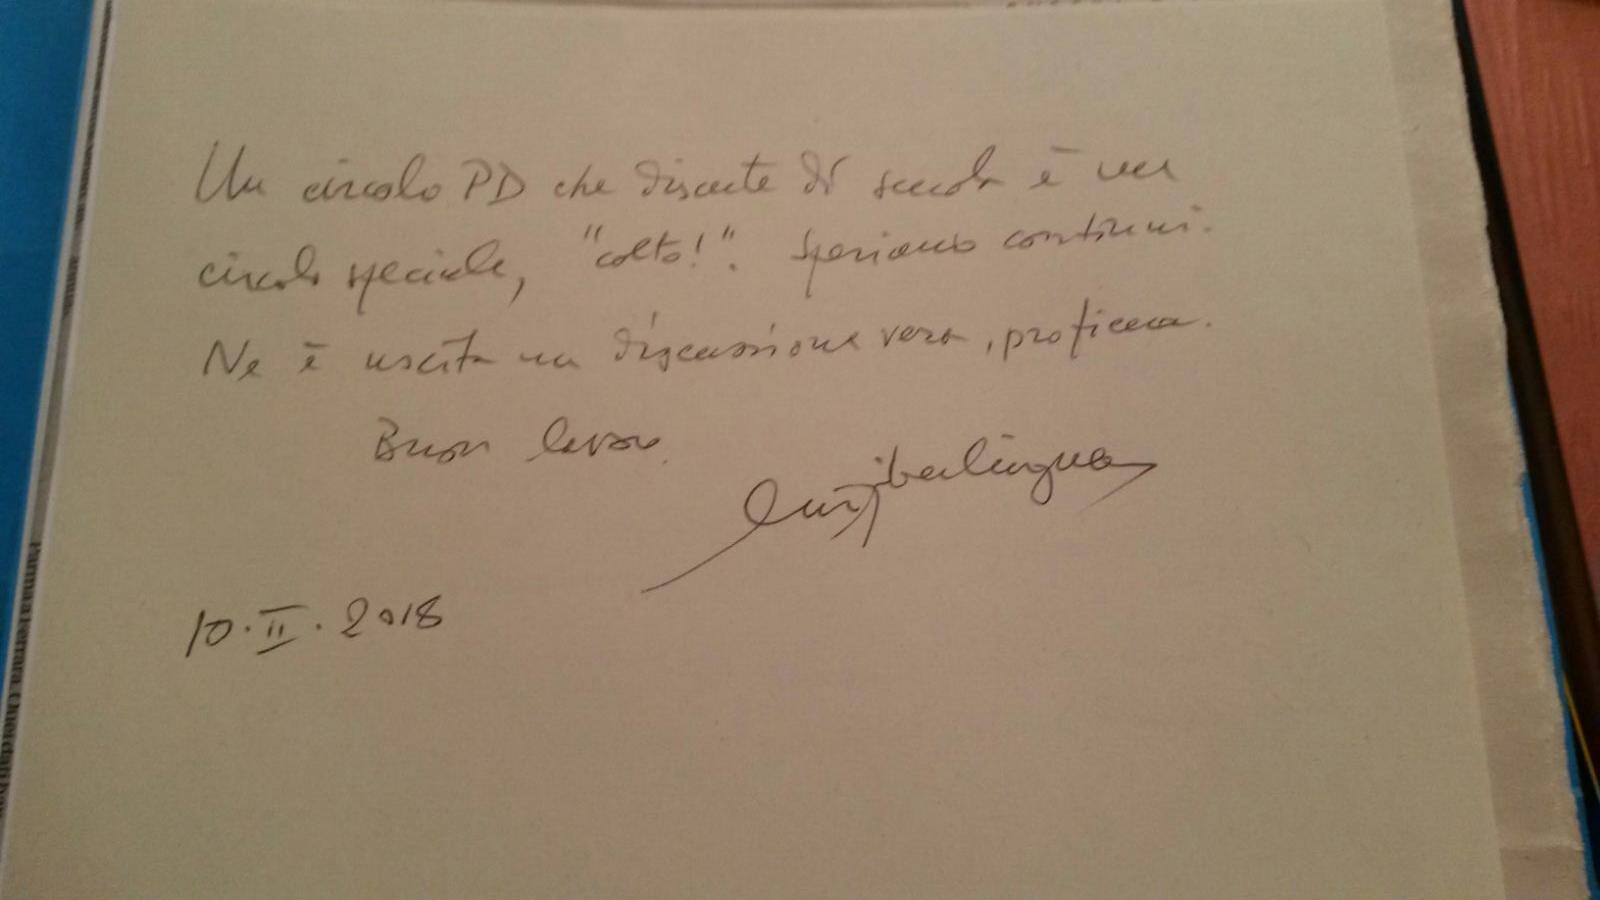 Un circolo PD che discute di scuola è un
circolo speciale, "colto!". Speriamo continui.
Ne è uscita una discussione vera, proficua.
Buon lavoro.
luigi berlinguer
10.II.2018